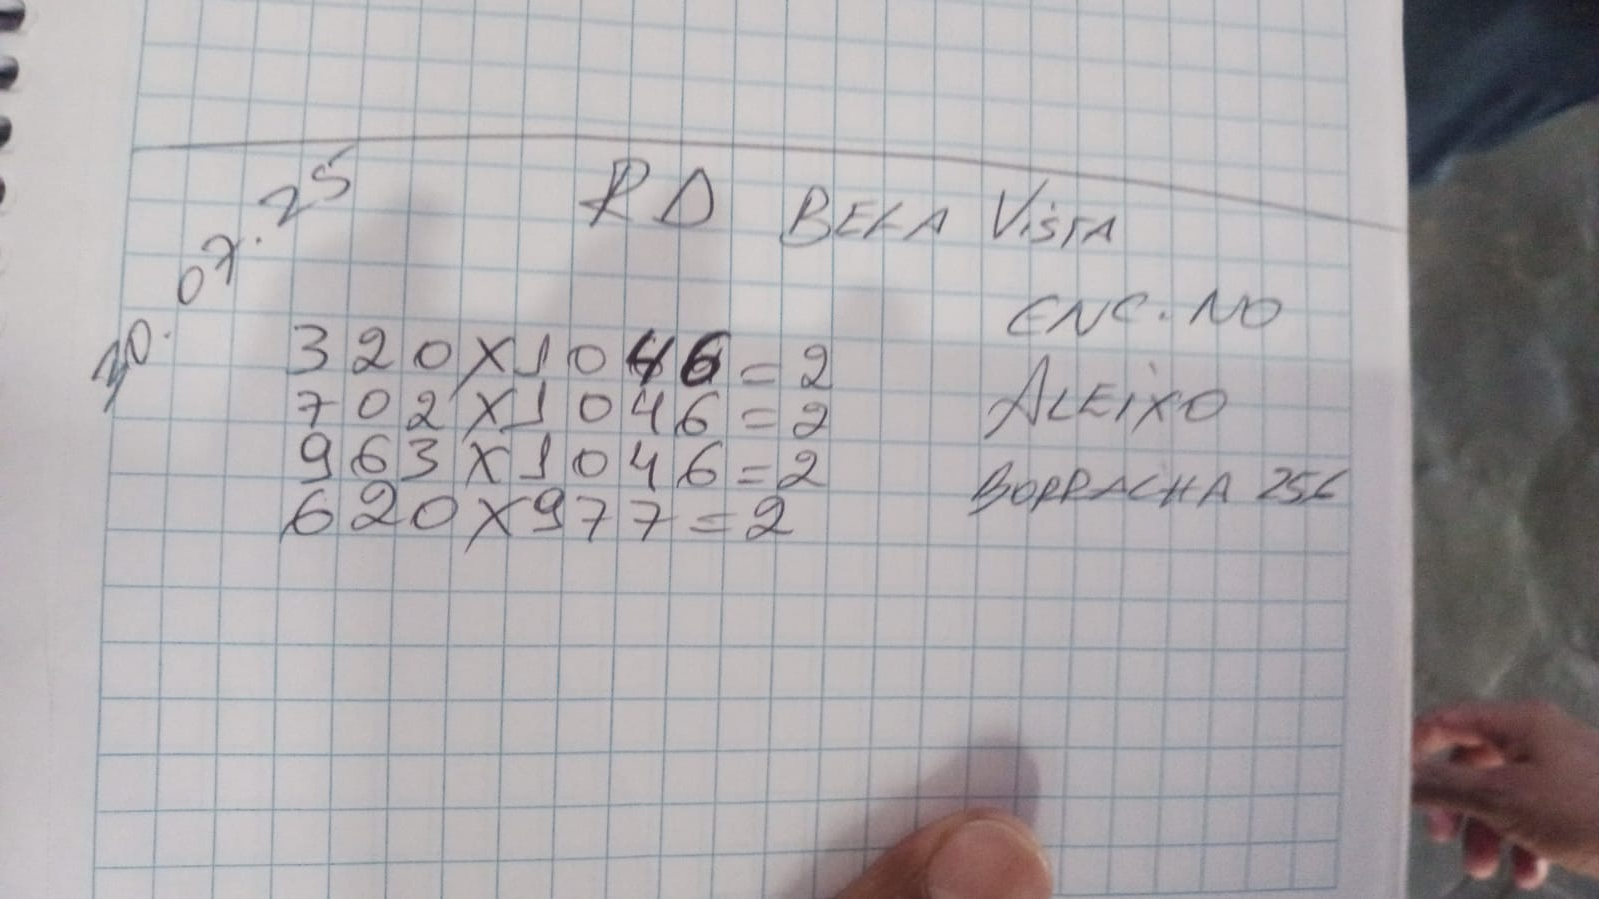 RD BELA VISTA
30.07.25
ENC. NO
320X1046=2
ALEIXO
702X1046=2
963X1046=2
BORRACHA 256
620X977=2